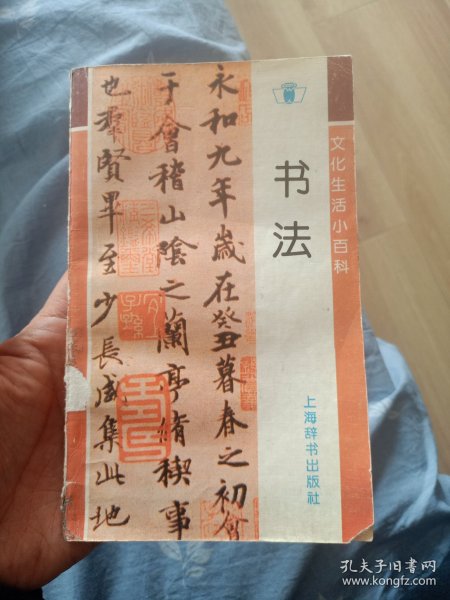 书法
文化生活小百科
上海辞书出版社
永和九年歲在癸丑暮春之初會
于會稽山陰之蘭亭脩稧事
也羣賢畢至少長咸集此地
孔夫子旧书网
www.kongfz.com